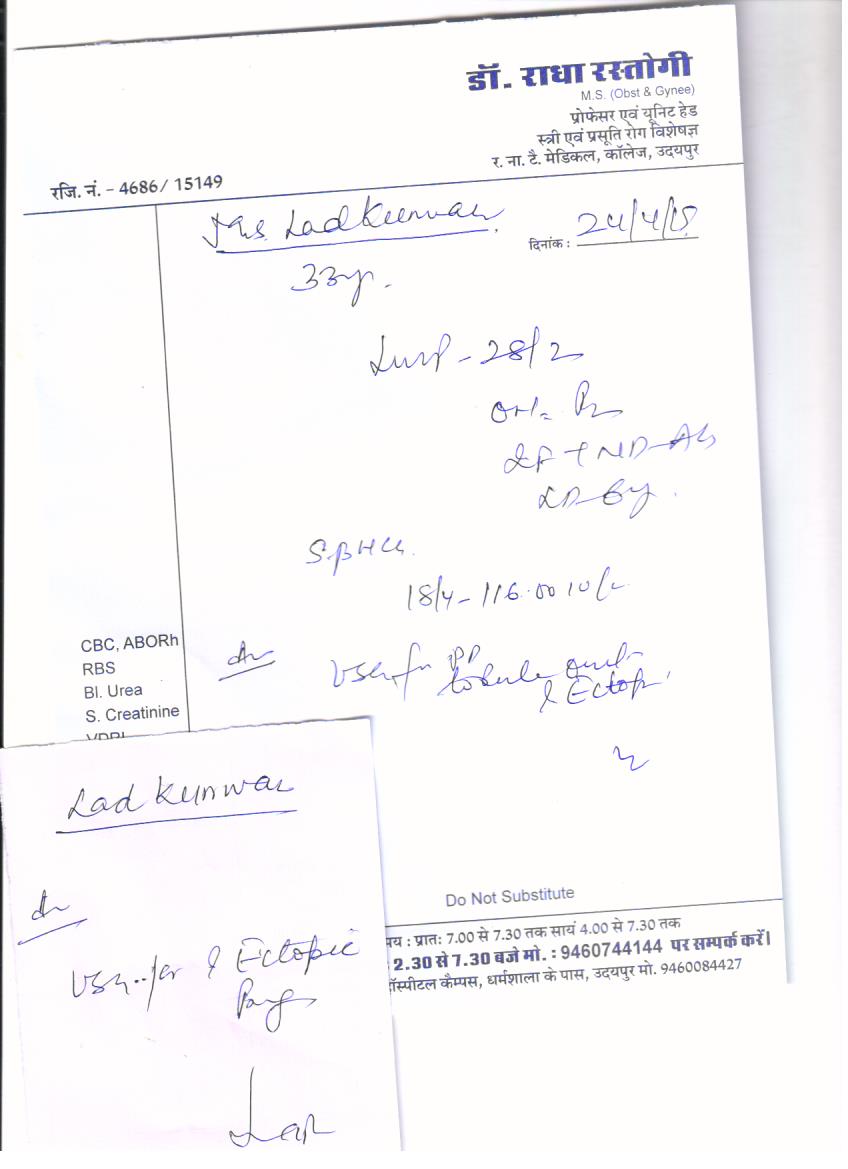 डॉ. राधा रस्तोगी
M.S. (Obst & Gynee)
प्रोफेसर एवं यूनिट हेड
स्त्री एवं प्रसूति रोग विशेषज्ञ
र. ना. टै. मेडिकल, कॉलेज, उदयपुर
रजि. नं. - 4686/ 15149
Mrs. Lad Kunwar
दिनांक : 24/4/15
33yr.
LMP - 28/2
LD - 6y.
S. βHCG.
18/4 -
CBC, ABORh
RBS
Bl. Urea
S. Creatinine
VDRL
Adv
USG for
Ectopic
Lad Kunwar
Adv
USG for ? Ectopic
Preg
Do Not Substitute
मय : प्रातः 7.00 से 7.30 तक सायं 4.00 से 7.30 तक
2.30 से 7.30 बजे मो. : 9460744144 पर सम्पर्क करें।
ॉस्पीटल कैम्पस, धर्मशाला के पास, उदयपुर मो. 9460084427